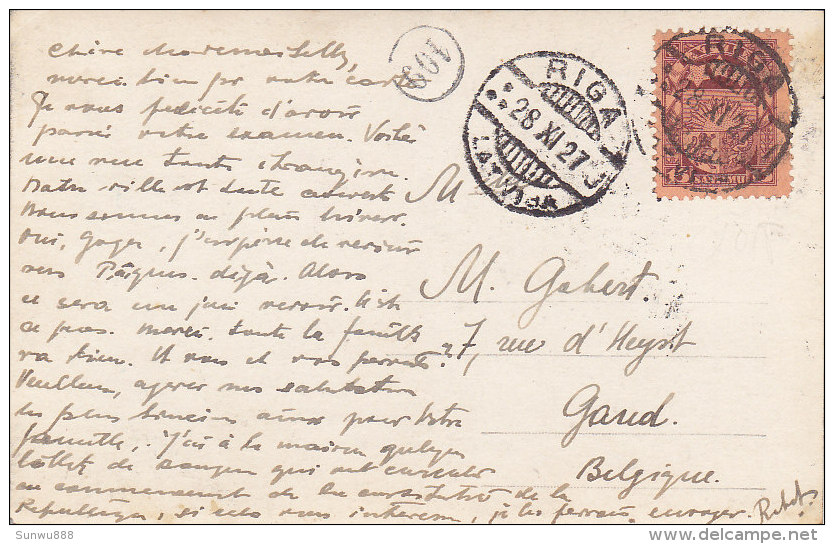 Chère Mademoiselle,
merci bien pr votre carte
Je vous félicite d'avoir
passé votre examen. Voilà
une vue toute
Notre ville est toute couverte
Nous sommes en plein hiver.
Oui, j'espère de revenir
vers Pâques. déjà. Alors
ce sera un revoir.
ce pas. Merci, toute la famille
va bien. Et vous et vos parents?
Veuillez, agréer nos salutations
les plus sincères ainsi pour votre
famille. J'ai à la maison quelques
billets de qui ont
au commencement de la de la
République, si cela vous intéresse, je les ferrais envoyer.
109
RIGA
28 XI 27
LATWIJA
RIGA
28 XI 27
M
M. Gobert.
27, rue d'Heyst
Gand.
Belgique.
Sunwu888
www.delcampe.net